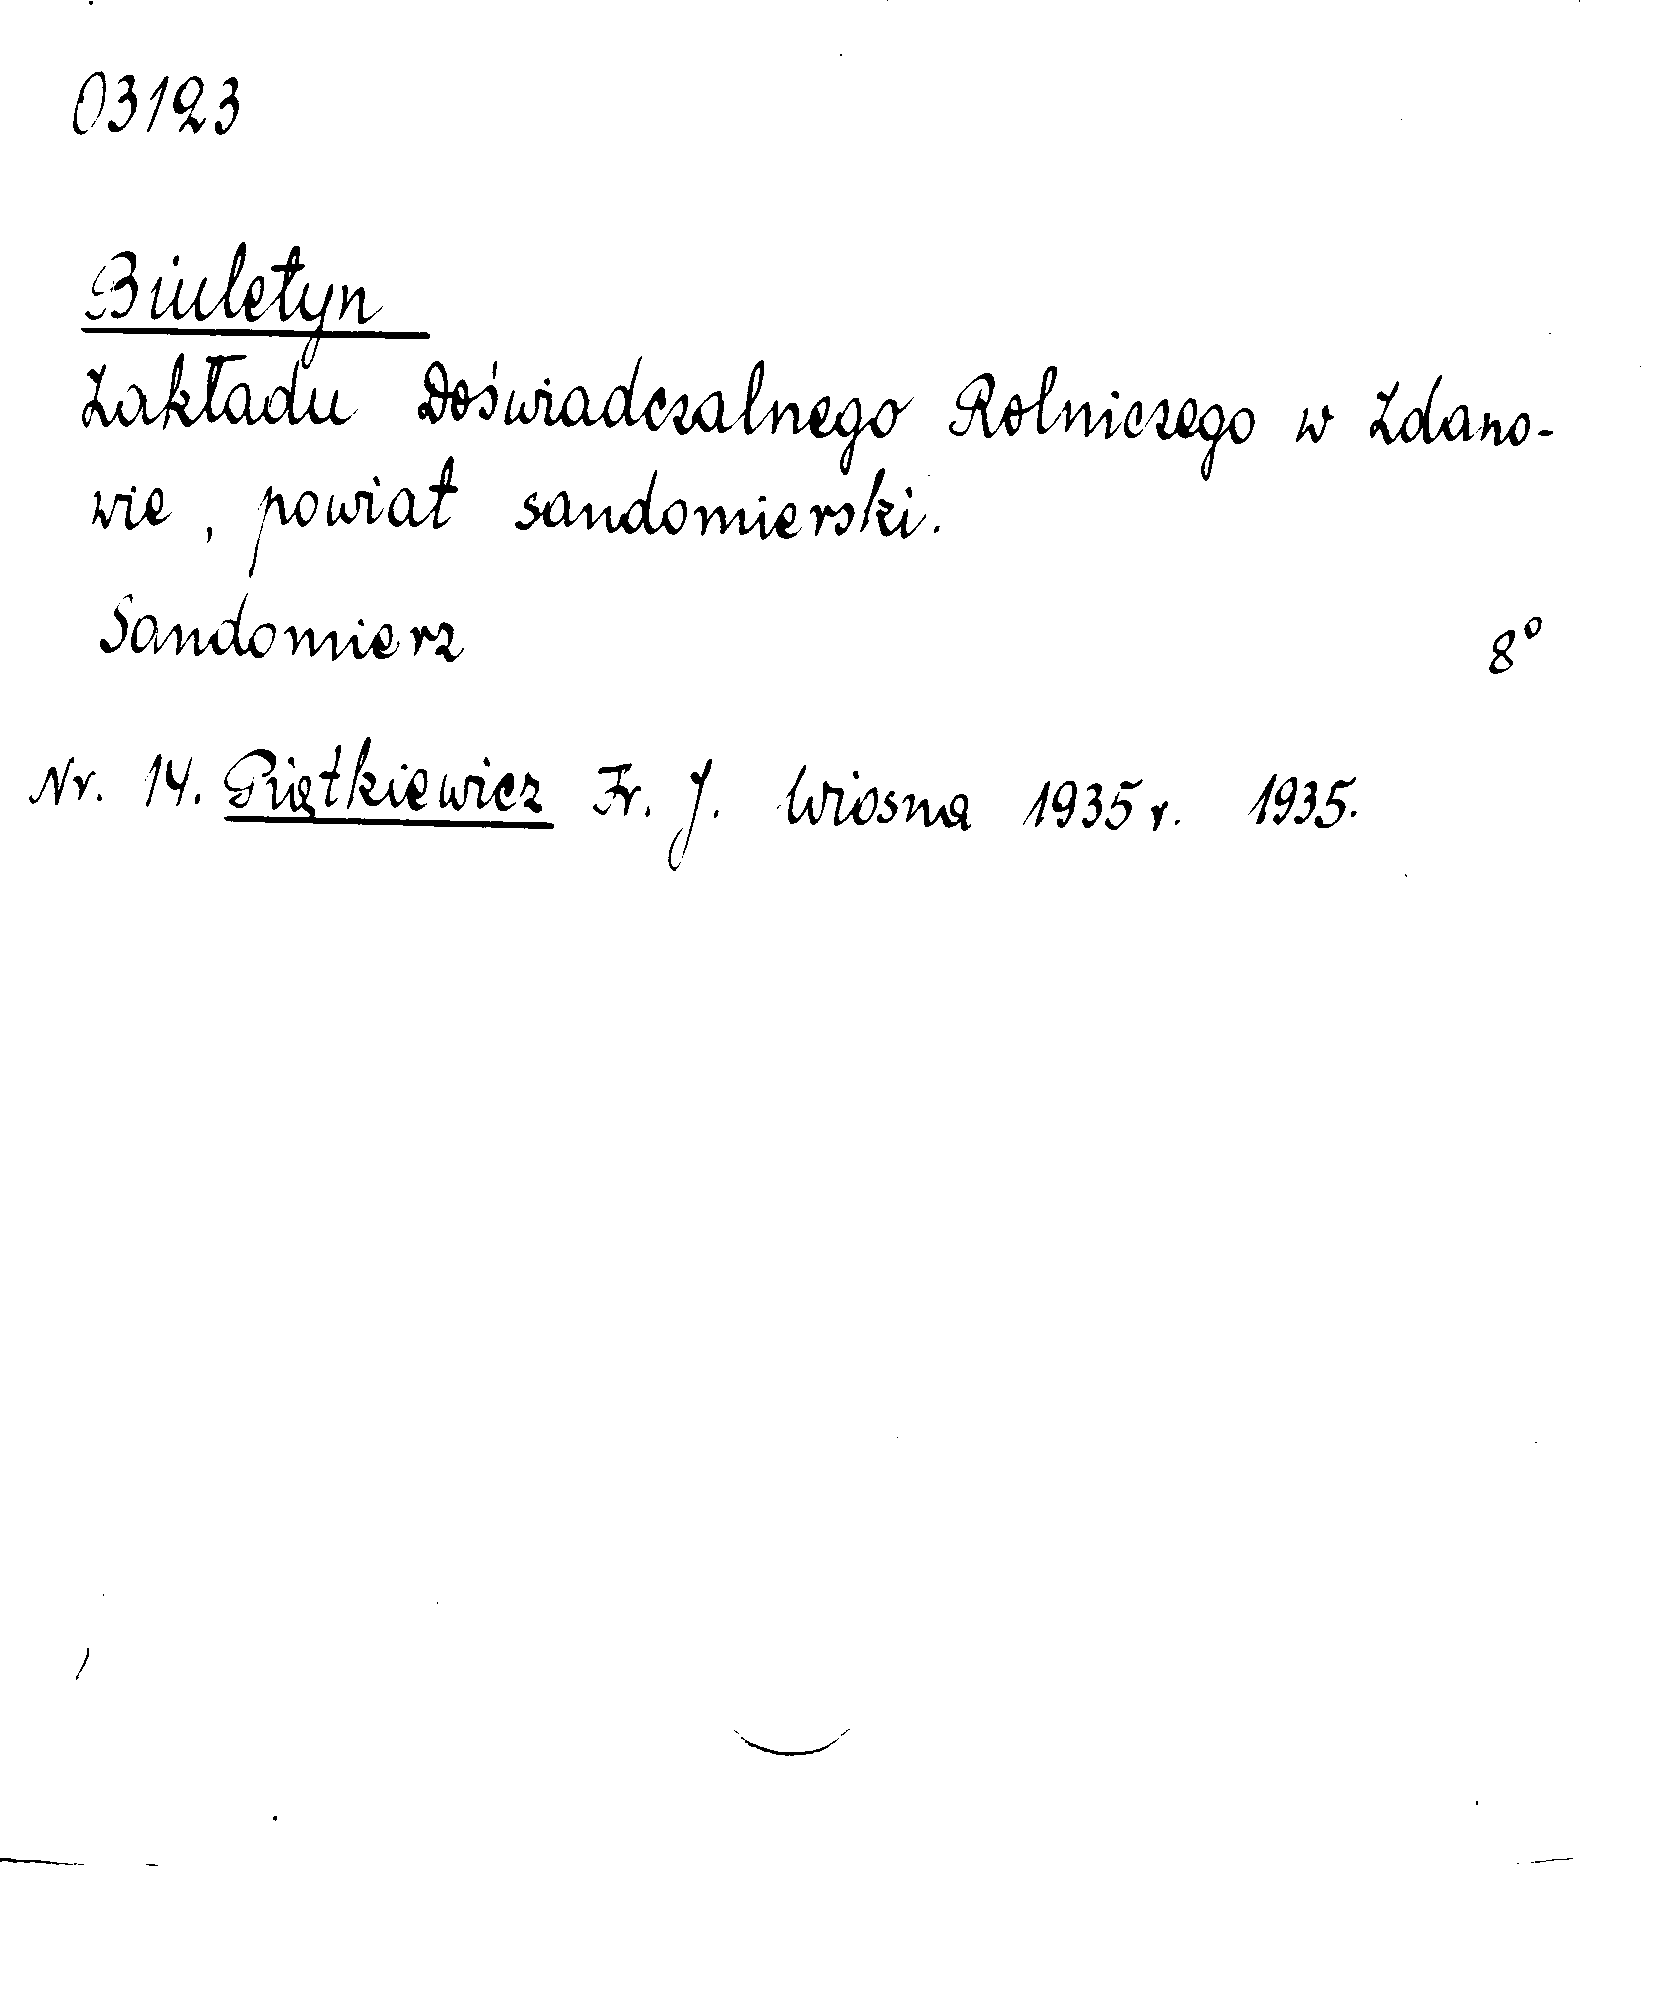 03123
Biuletyn
Zakładu Doświadczalnego Rolniczego w Zdano-
wie, powiat sandomierski.
Sandomierz 8°
Nr. 14. Piątkiewicz Fr. J. Wiosna 1935 r. 1935.